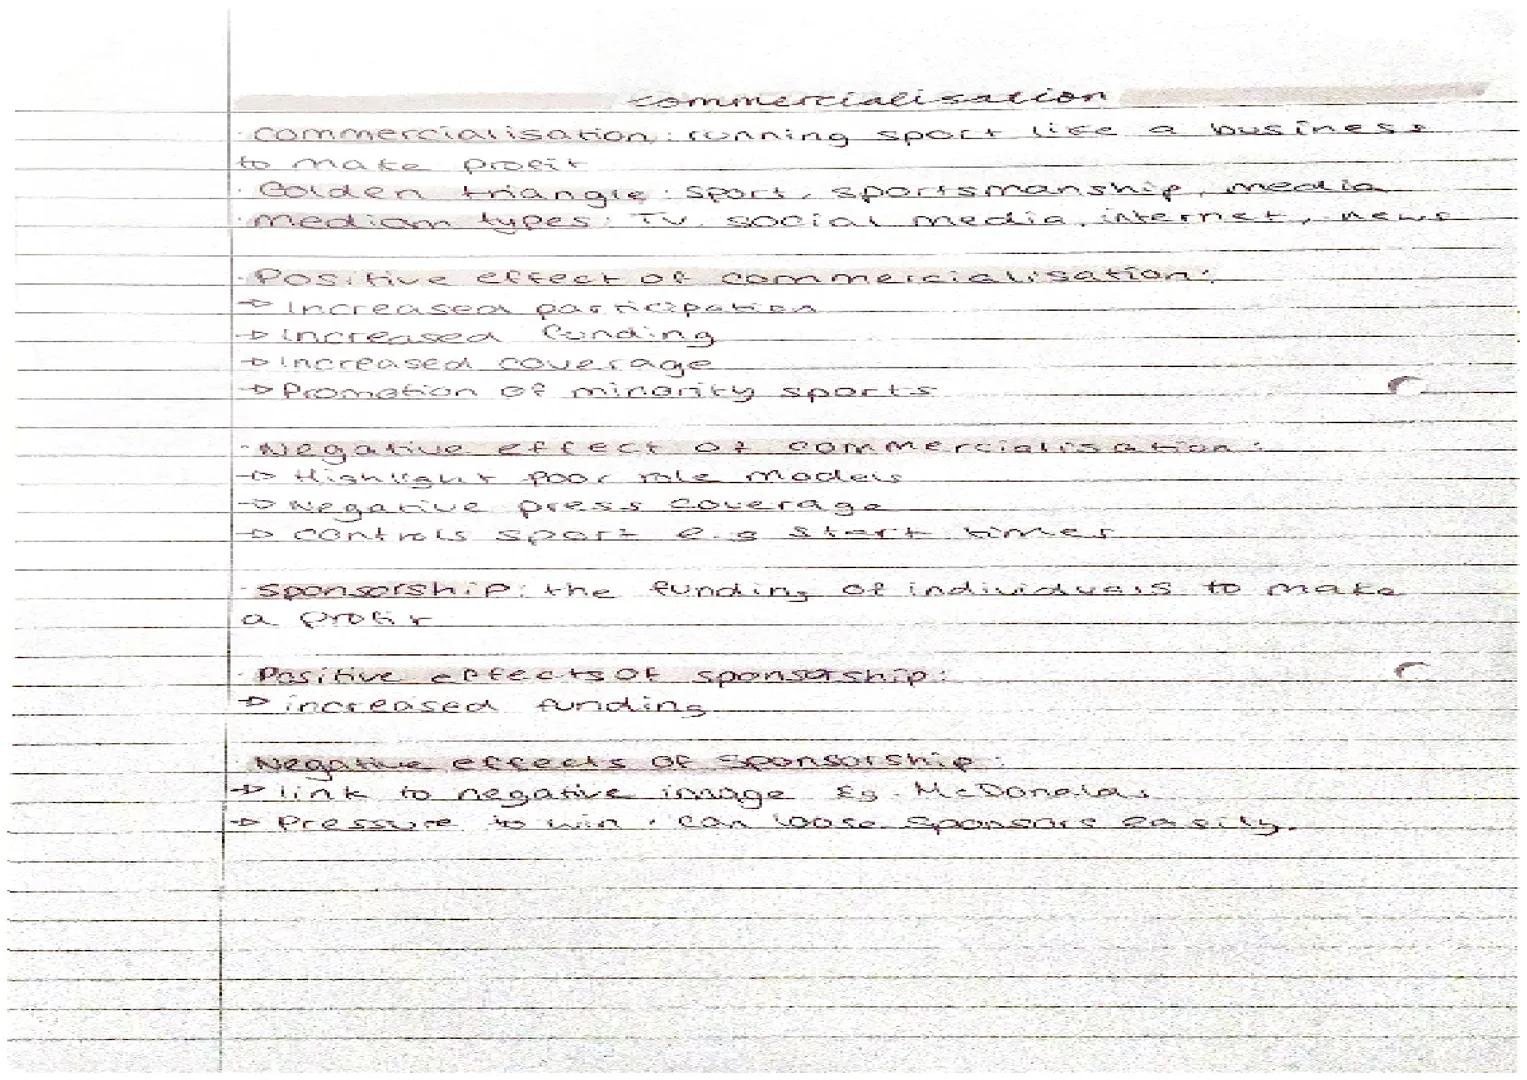 commercialisation
· commercialisation: running sport like a business
to make profit
· Golden triangle: sport, sportsmanship, media
· mediam types: TV, social media, internet, news
· Positive effect of commercialisation:
→ Increased participation
→ increased funding
→ increased coverage
→ Promotion of minority sports
· Negative effect of commercialisation:
→ Highlight poor role models
→ Negative press coverage
→ controls sport e.g start times
· sponsorship: the funding of individuals to make
a profit
· Positive effects of sponsorship:
→ increased funding
· Negative effects of sponsorship:
→ link to negative image Eg. McDonalds
→ Pressure to win, can loose sponsors easily.